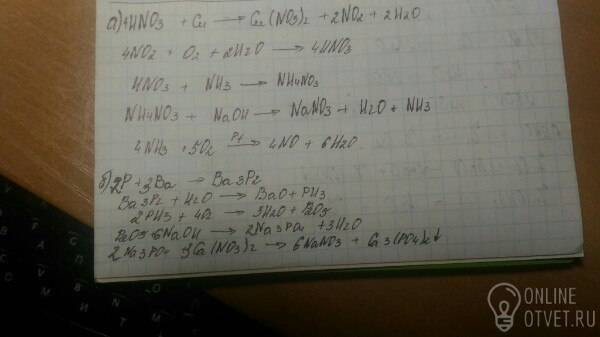 а) 4HNO3 + Cu → Cu(NO3)2 + 2NO2 + 2H2O
4NO2 + O2 + 2H2O → 4HNO3
HNO3 + NH3 → NH4NO3
NH4NO3 + NaOH → NaNO3 + H2O + NH3
4NH3 + 5O2 Pt → 4NO + 6H2O
б) 2P + 3Ba → Ba3P2
Ba3P2 + H2O → BaO + PH3
2PH3 + 4O2 → 3H2O + P2O5
P2O5 6NaOH → 2Na3PO4 + 3H2O
2Na3PO4 3Ca(NO3)2 → 6NaNO3 + Ca3(PO4)2↓
ONLINE
OTVET.RU